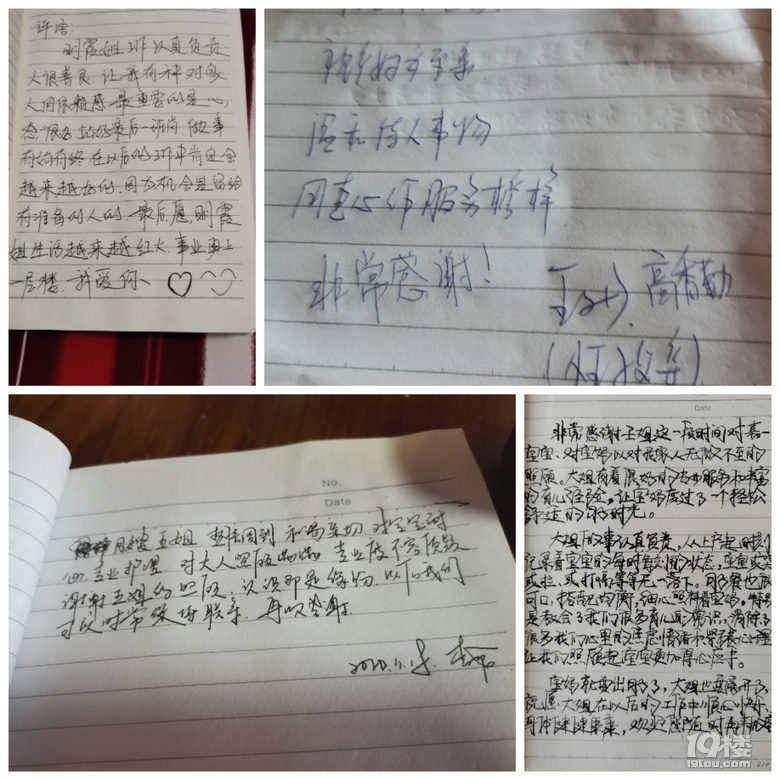 评语:
明霞姐工作认真负责
人很善良,让我有种对家
人的依赖感,最重要的是心
态很好,站好最后一班岗,做事
有始有终,在以后的工作中肯定会
越来越好的,因为机会是留给
有准备的人的.最后愿,明霞
姐生活越来越红火.事业更上
一层楼.我爱你、♡
温和待人事物
用真心作服务榜样
非常感谢!
高香勤
No.
Date
月嫂王姐 热情周到 和蔼亲切 对宝宝耐
心专业护理 对大人照顾 专业度不容质疑
谢谢王姐的照顾,认识即是缘份,以后我们
可以时常保持联系,再次感谢.
2020.11.15.
Date
非常感谢王姐这一段时间对喜
宝宝、对宝妈以对我家人无微不至的
照顾。大姐有着很好的专业服务和丰富
的育儿经验,让宝妈度过了一个轻松
舒适的月子时光。
大姐做事认真负责,从上户起时刻
记录着宝宝的每时每刻的状态,宝宝或
或拉,或打嗝等等无一落下。月子餐也很
可口,搭配均衡,细心照料着宝妈,特别
是教会了我们很多育儿的常识,消除了
很多我们心里的焦虑情绪和紧张心理
让我们照顾起宝宝更加得心应手。
宝妈就要出月子了,大姐也要离开了
祝愿大姐在以后的工作中顺心顺
身体健健康康,欢迎随时再来
19楼
19lou.com